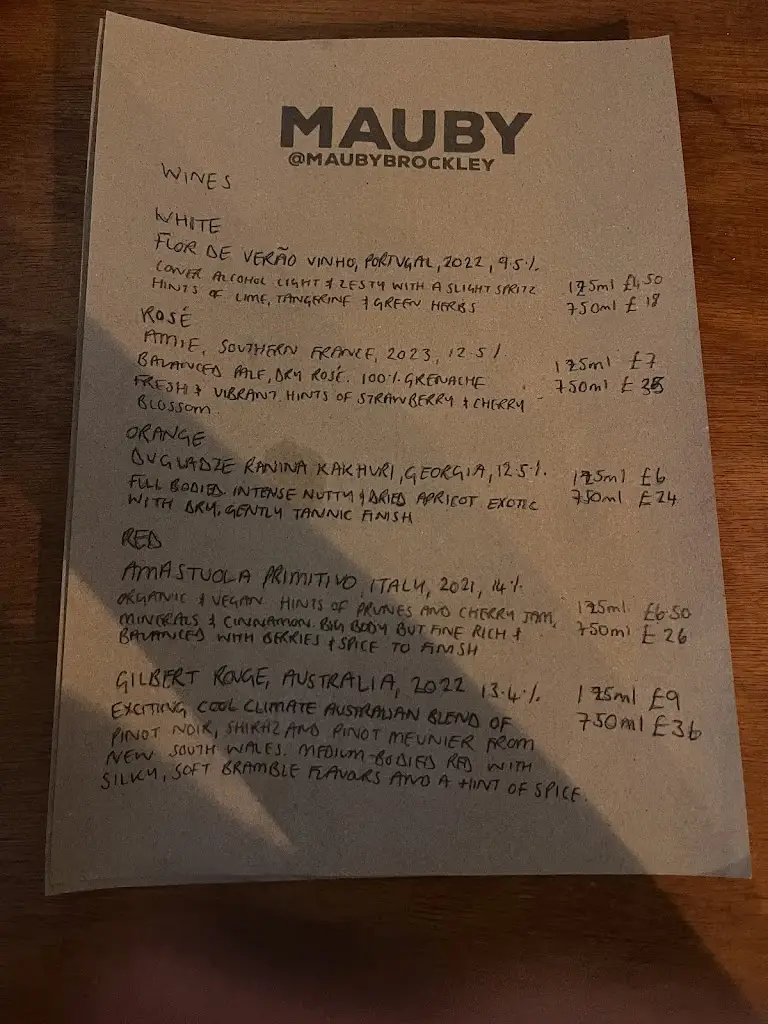 MAUBY
@MAUBYBROCKLEY
WINES
WHITE
FLOR DE VERÃO VINHO, PORTUGAL, 2022, 9.5%.
LOWER ALCOHOL LIGHT & ZESTY WITH A SLIGHT SPRITZ 175ml £4.50
HINTS OF LIME, TANGERINE & GREEN HERBS 750ml £18
ROSÉ
AMIE, SOUTHERN FRANCE, 2023, 12.5% 175ml £7
BALANCED PALE, DRY ROSÉ. 100% GRENACHE 750ml £
FRESH & VIBRANT. HINTS OF STRAWBERRY & CHERRY
BLOSSOM.
ORANGE
DUGLADZE RANINA KAKHURI, GEORGIA, 12.5%. 175ml £6
FULL BODIED. INTENSE NUTTY & DRIED APRICOT EXOTIC 750ml £24
WITH DRY, GENTLY TANNIC FINISH
RED
AMASTUOLA PRIMITIVO, ITALY, 2021, 14%
ORGANIC & VEGAN. HINTS OF PRUNES AND CHERRY JAM, 175ml £6.50
MINERALS & CINNAMON. BIG BODY BUT FINE RICH & 750ml £26
BALANCED WITH BERRIES & SPICE TO FINISH
GILBERT ROUGE, AUSTRALIA, 2022 13.4% 175ml £9
EXCITING COOL CLIMATE AUSTRALIAN BLEND OF 750ml £36
PINOT NOIR, SHIRAZ AND PINOT MEUNIER FROM
NEW SOUTH WALES. MEDIUM-BODIED RED WITH
SILKY, SOFT BRAMBLE FLAVORS AND A HINT OF SPICE.